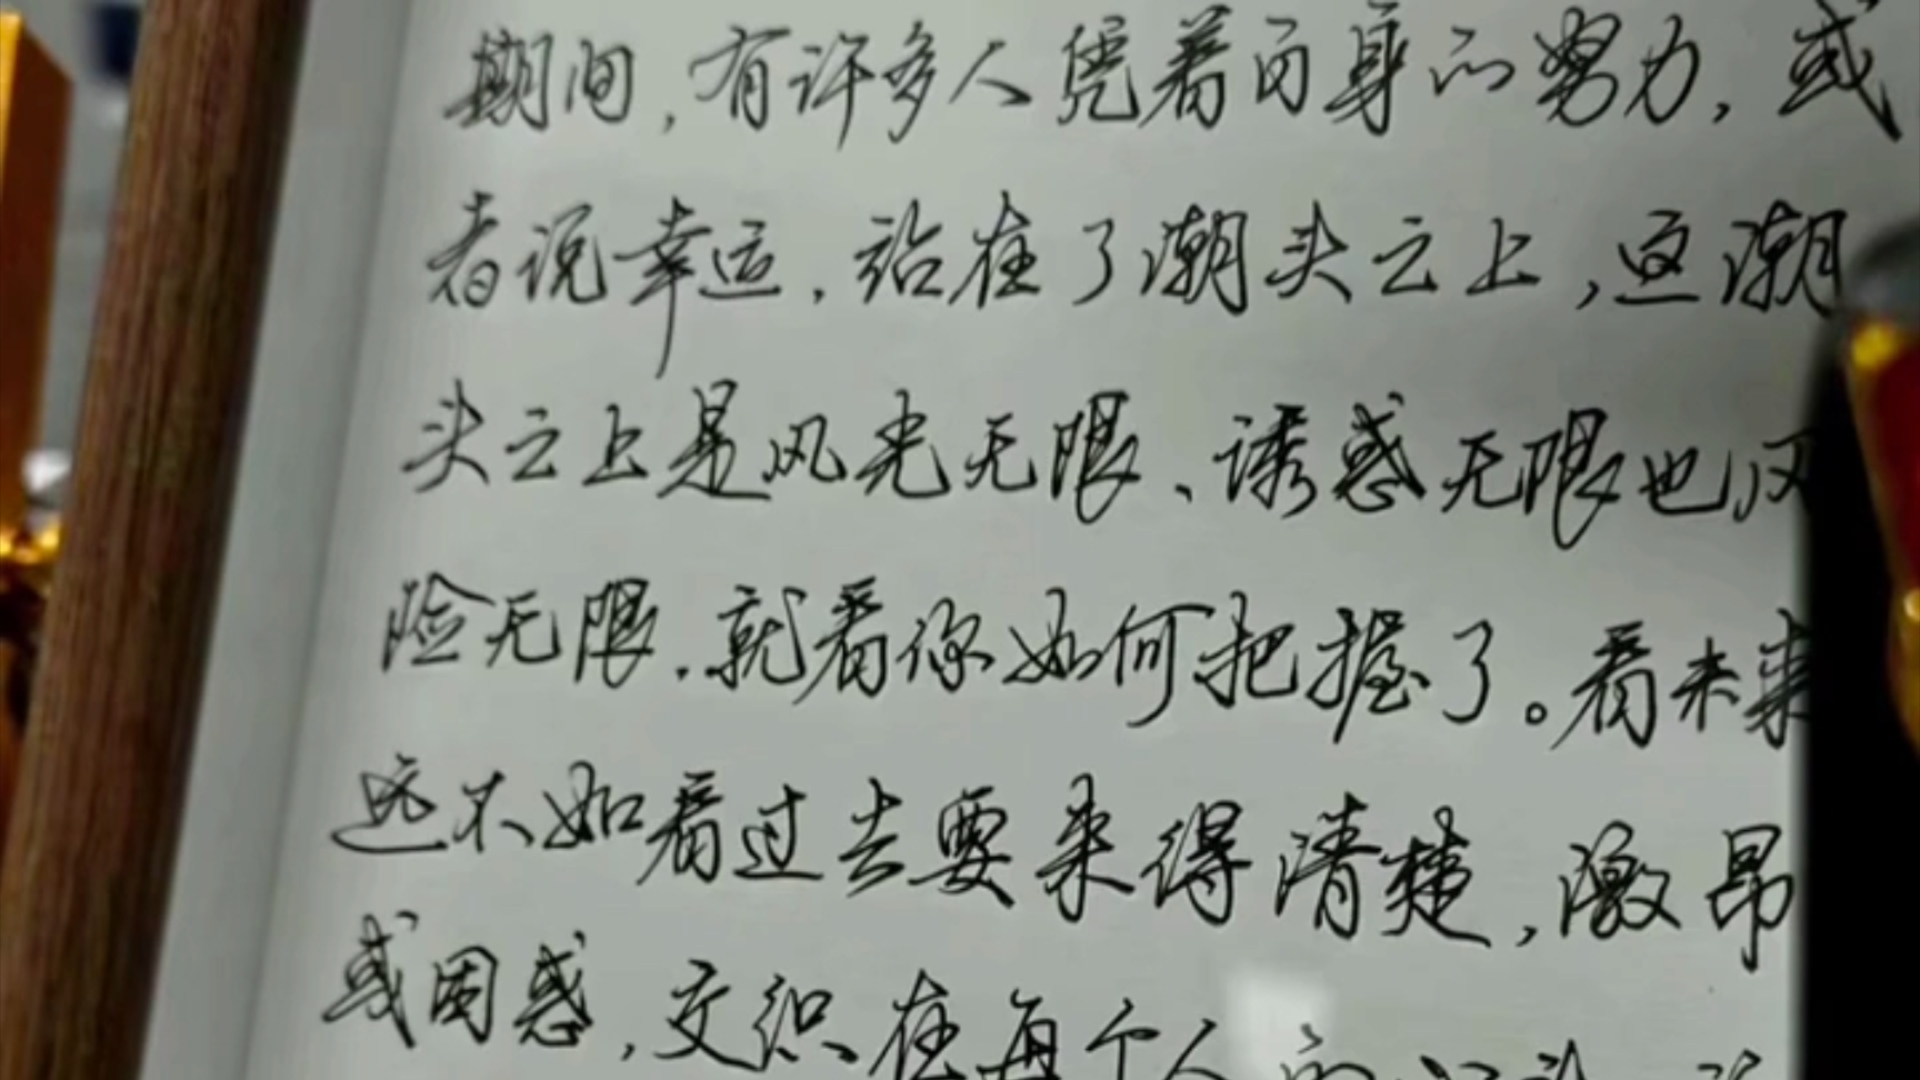 期间，有许多人凭着自身的努力，或
者说幸运，站在了潮头之上，这潮
头之上是风光无限、诱惑无限也风
险无限，就看你如何把握了。看未来
远不如看过去要来得清楚，激昂
或困惑，交织在每个人的